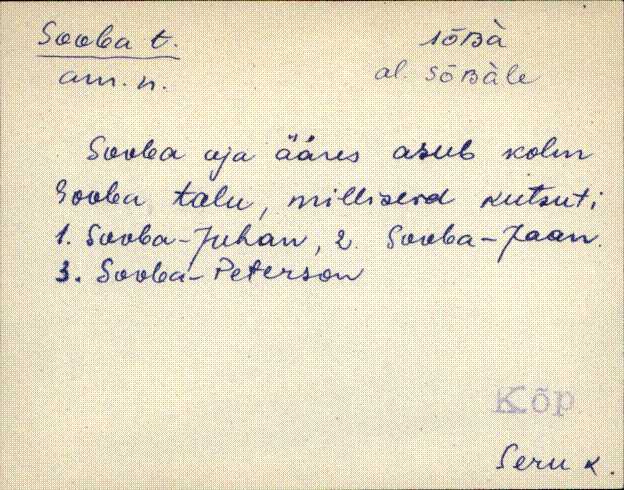 Sooba t. sōʙà
am. n. al. sōʙàle
Sooba oja ääres asub kolm
Sooba talu, milliseid kutsuti
1. Sooba-Juhan, 2. Sooba-Jaan.
3. Sooba-Peterson
Kõp
Seru k.